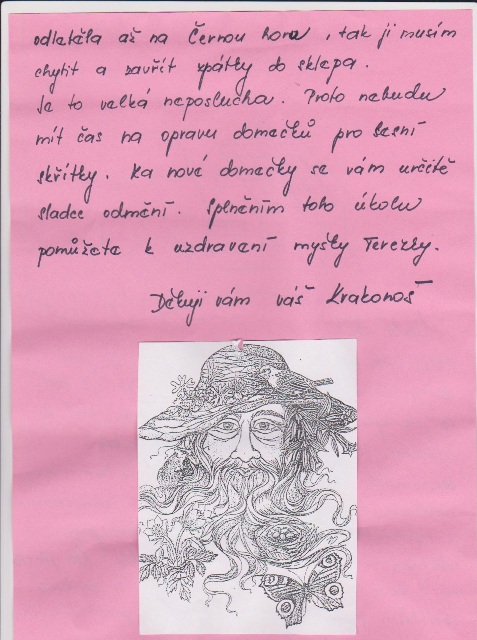 odletěla až na Černou horu, tak ji musím
chytit a zavřít zpátky do sklepa.
Je to velká neposlucha. Proto nebudu
mít čas na opravu domečků pro lesní
skřítky. Za nové domečky se vám určitě
sladce odmění. Splněním toho úkolu
pomůžete k uzdravení myšky Terezky.
Děkuji vám váš Krakonoš